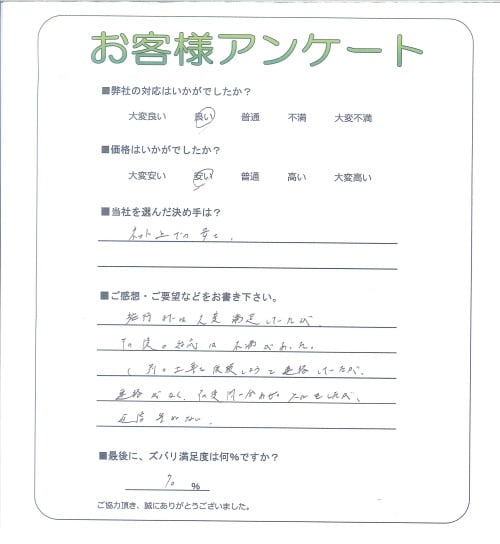 お客様アンケート
■弊社の対応はいかがでしたか？
大変良い 良い 普通 不満 大変不満
■価格はいかがでしたか？
大変安い 安い 普通 高い 大変高い
■当社を選んだ決め手は？
ネット上での
■ご感想・ご要望などをお書き下さい。
施行 は 大変 満足していたが、
の対応は 不満があった。
工事を しようと 連絡していたが、
連絡がなく、 メールをしたが、
返信 がない。
■最後に、ズバリ満足度は何％ですか？
70 ％
ご協力頂き、誠にありがとうございました。